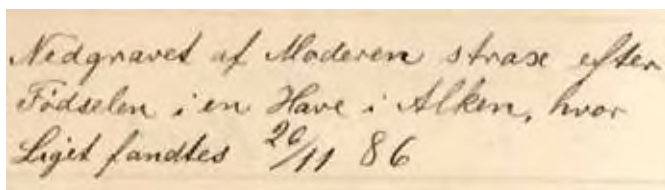 Nedgravet af Moderen strax efter
Fødselen i en Have i Alken, hvor
Liget fandtes 26/11 86